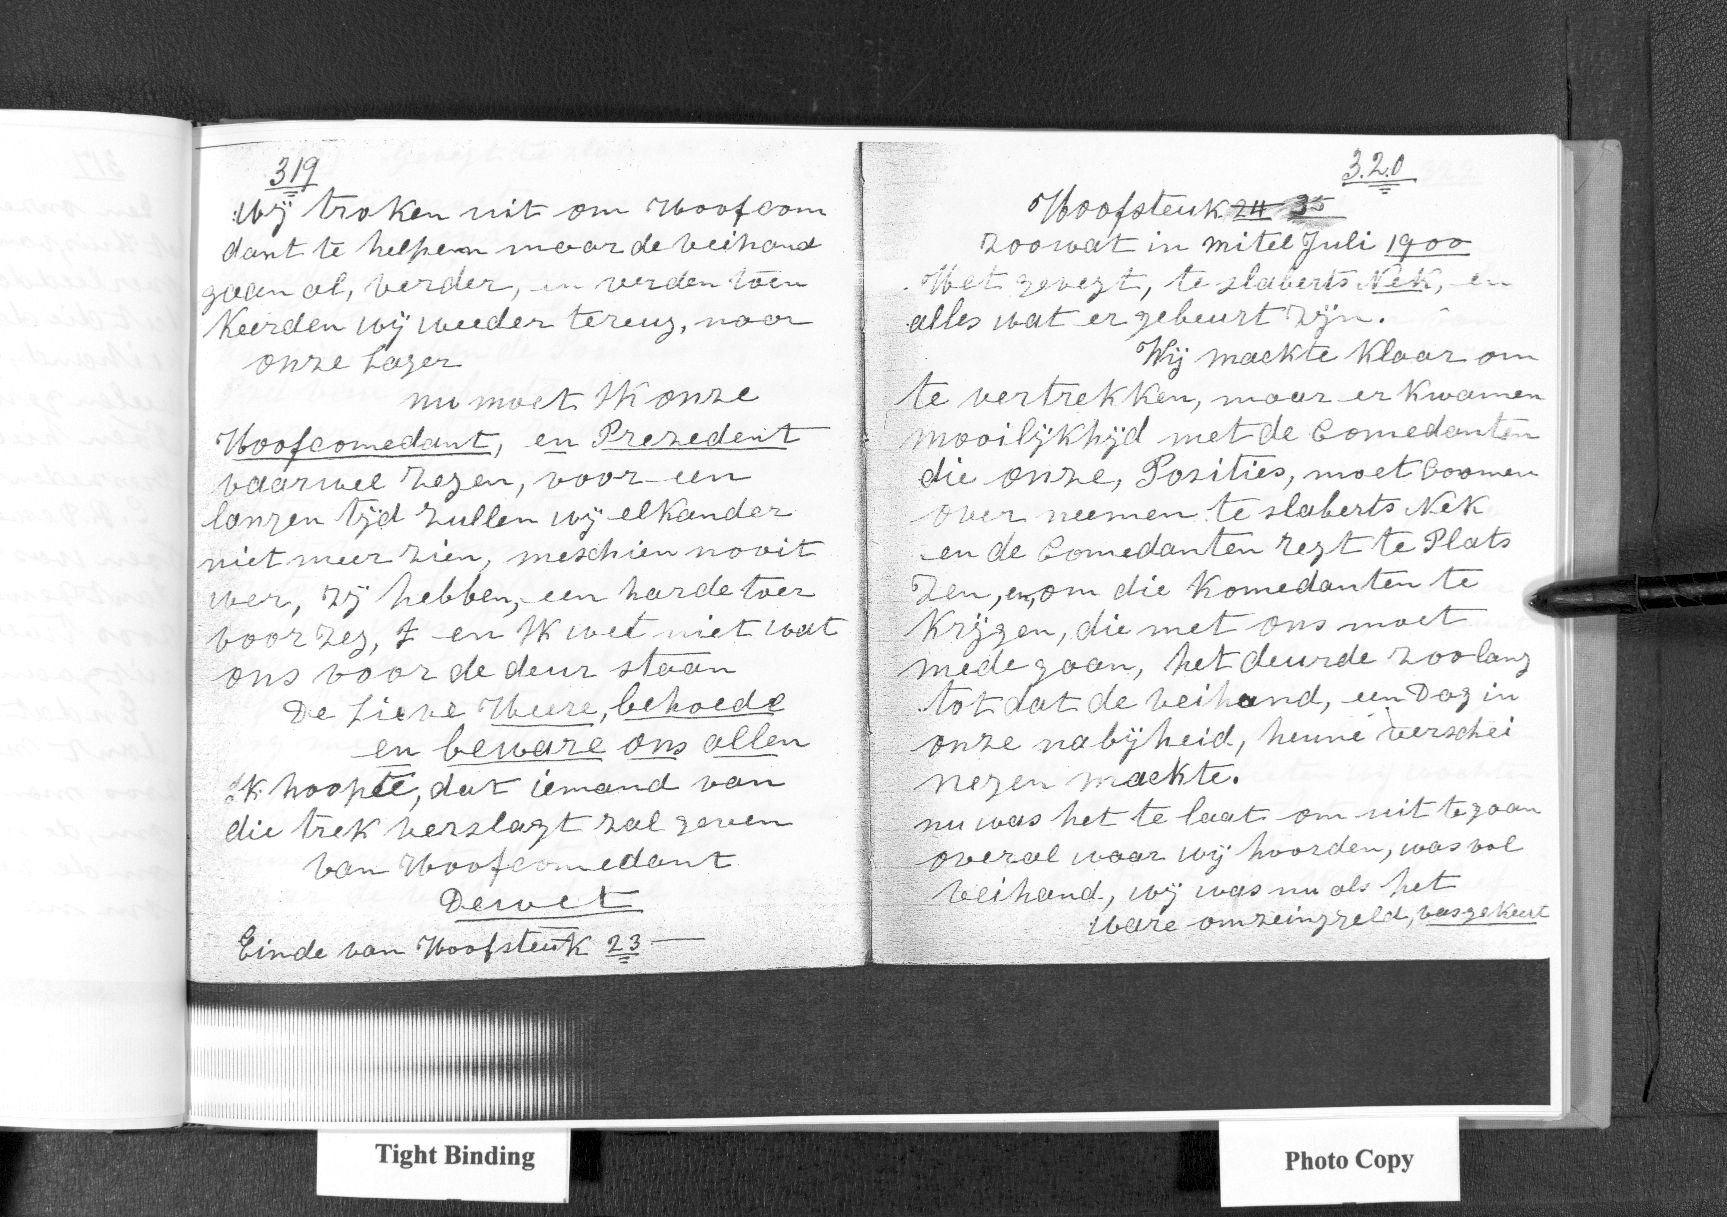 319
Wij troken uit om Hoofcom
dant te helpen maar de veihand
gaan al, verder, en verden toen
Keerden wij weeder tereug, naar
onze Lager
nu moet Ik onze
Hoofcomedant, en Prezedent
vaarwel zegen, voor een
langen tijd zullen wij elkander
niet meer zien, meschien nooit
wer, zij hebben, een harde toer
voor zeg, & en Ik wet niet wat
ons voor de deur staan
De Lieve Heere, behoede
en beware ons allen
Ik hoopte, dat iemand van
die trek verslagt zal geven
van Hoofcomedant
Dewet
Einde van Hoofsteuk 23 —
3.2.0
Hoofsteuk 24 35
Zoowat in mitel Juli 1900
Het gevegt, te slaberts Nek, en
alles wat er gebeurt zijn.
Wij maekte klaar om
te vertrekken, maar er kwamen
mooilijkhijd met de Comedanten
die onze, Posities, moet Coomen
over neemen te slaberts Nek
en de Comedanten zegt te Plats
Zen, en, om die Komedanten te
Krijgen, die met ons moet
mede gaan, het deurde zoo lang
tot dat de veihand, een Dag in
onze nabijheid, heune verschei
negen maekte.
nu was het te laat om uit te gaan
overal waar wij hoorden, was vol
veihand, wij was nu als het
ware omzeingzeld, vasgekeurt
Tight Binding
Photo Copy